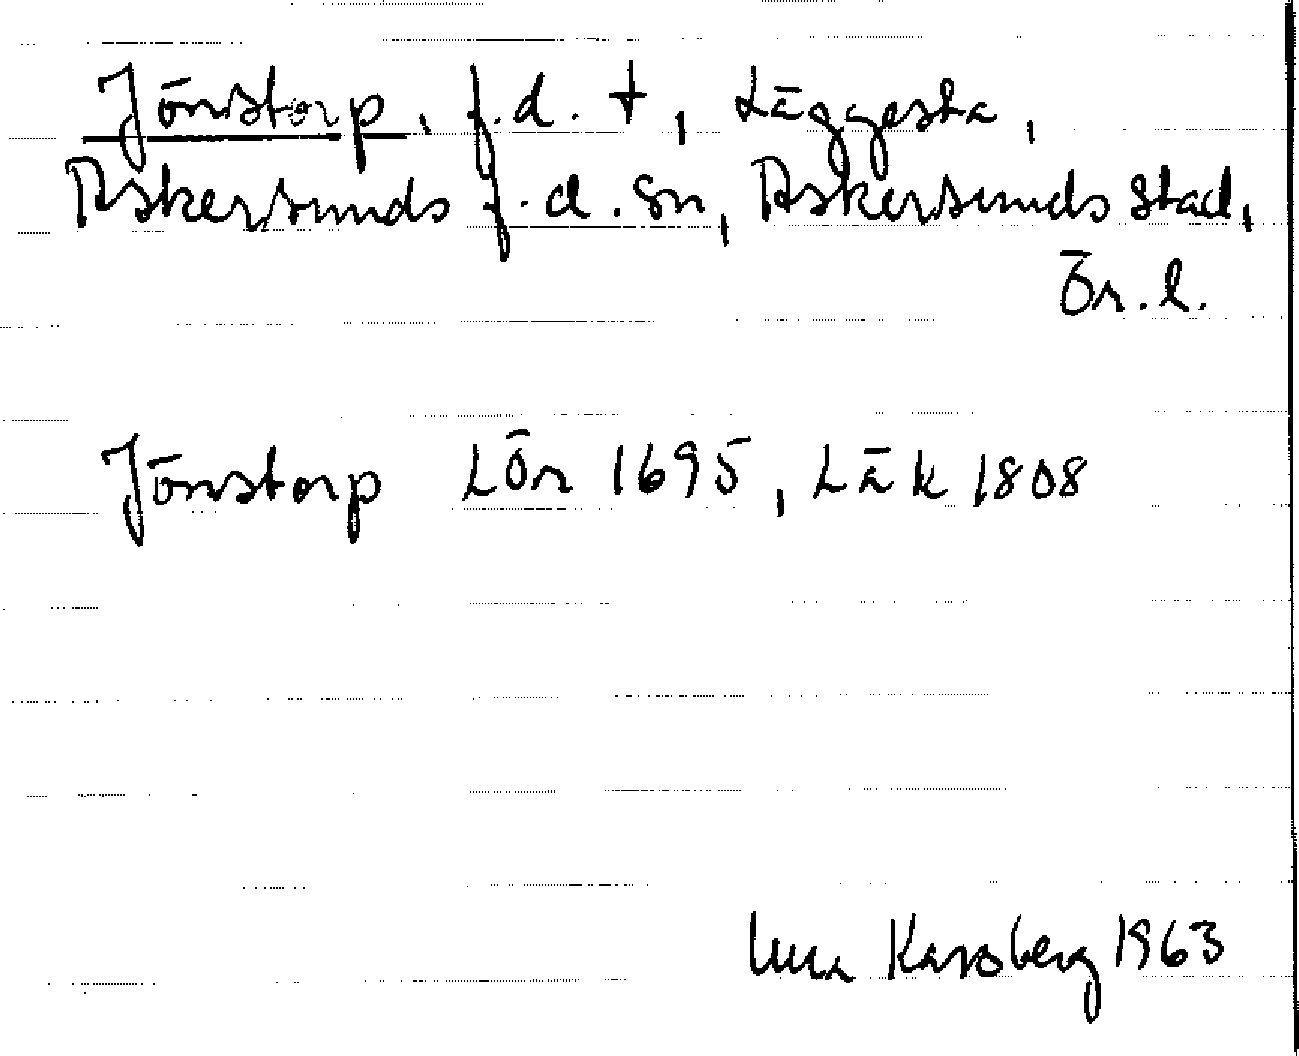 Jönstorp, f.d. t, Läggesta,
Askersunds f.d. sn, Askersunds stad,
Ör. l.
Jönstorp LÖr 1695, Läk 1808
Karsberg 1963